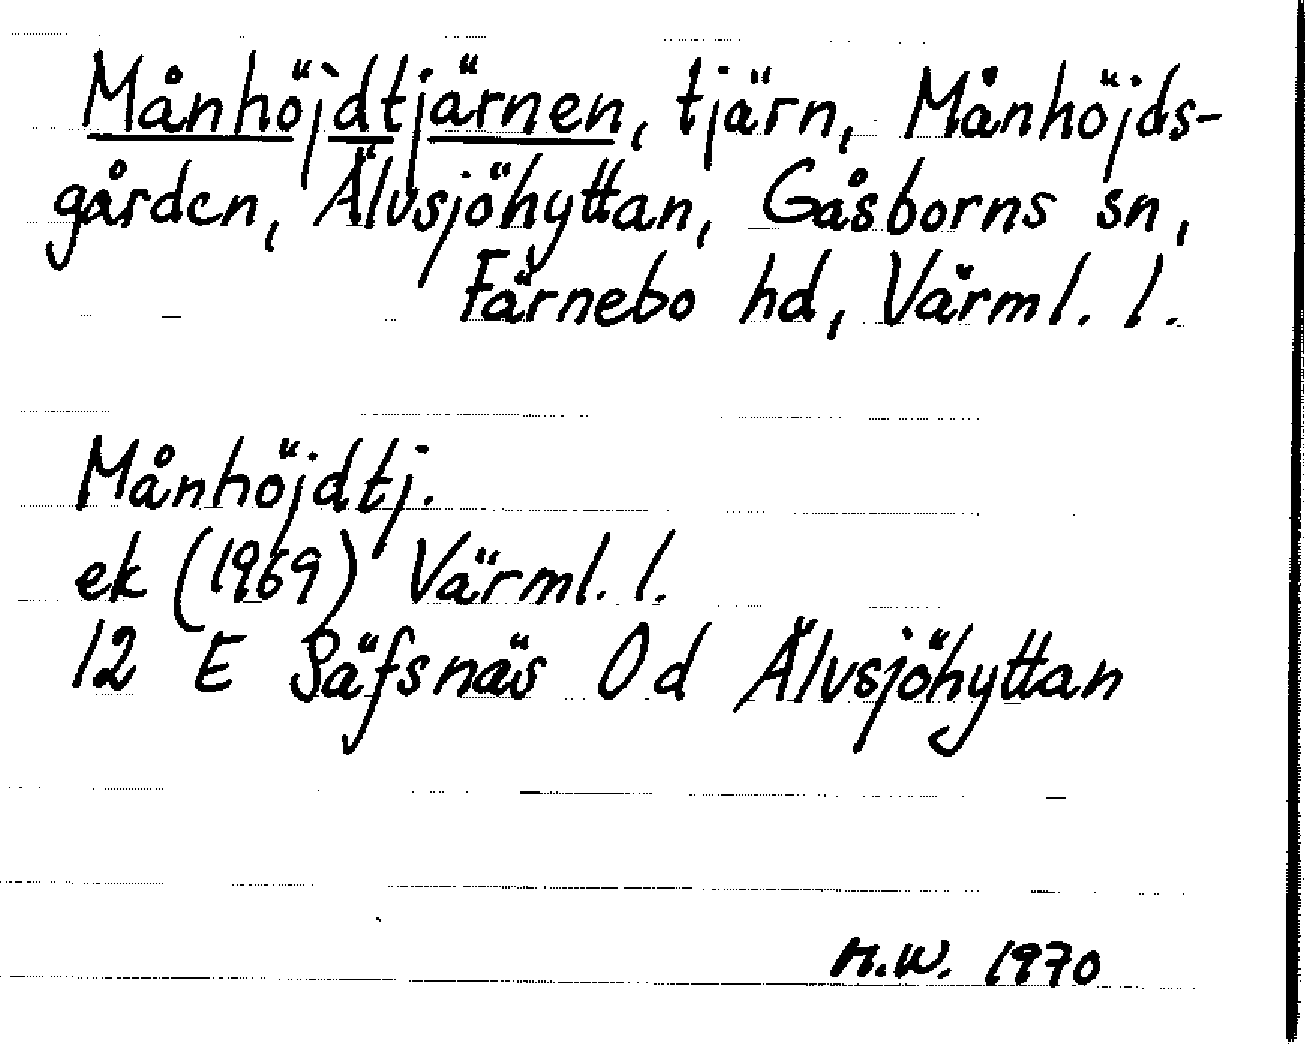 Månhöjdtjärnen, tjärn, Månhöjds-
gården, Älvsjöhyttan, Gåsborns sn,
Färnebo hd, Värml. l.
Månhöjdtj.
ek (1969) Värml. l.
12 E Säfsnäs 0 d Älvsjöhyttan
M.W. 1970